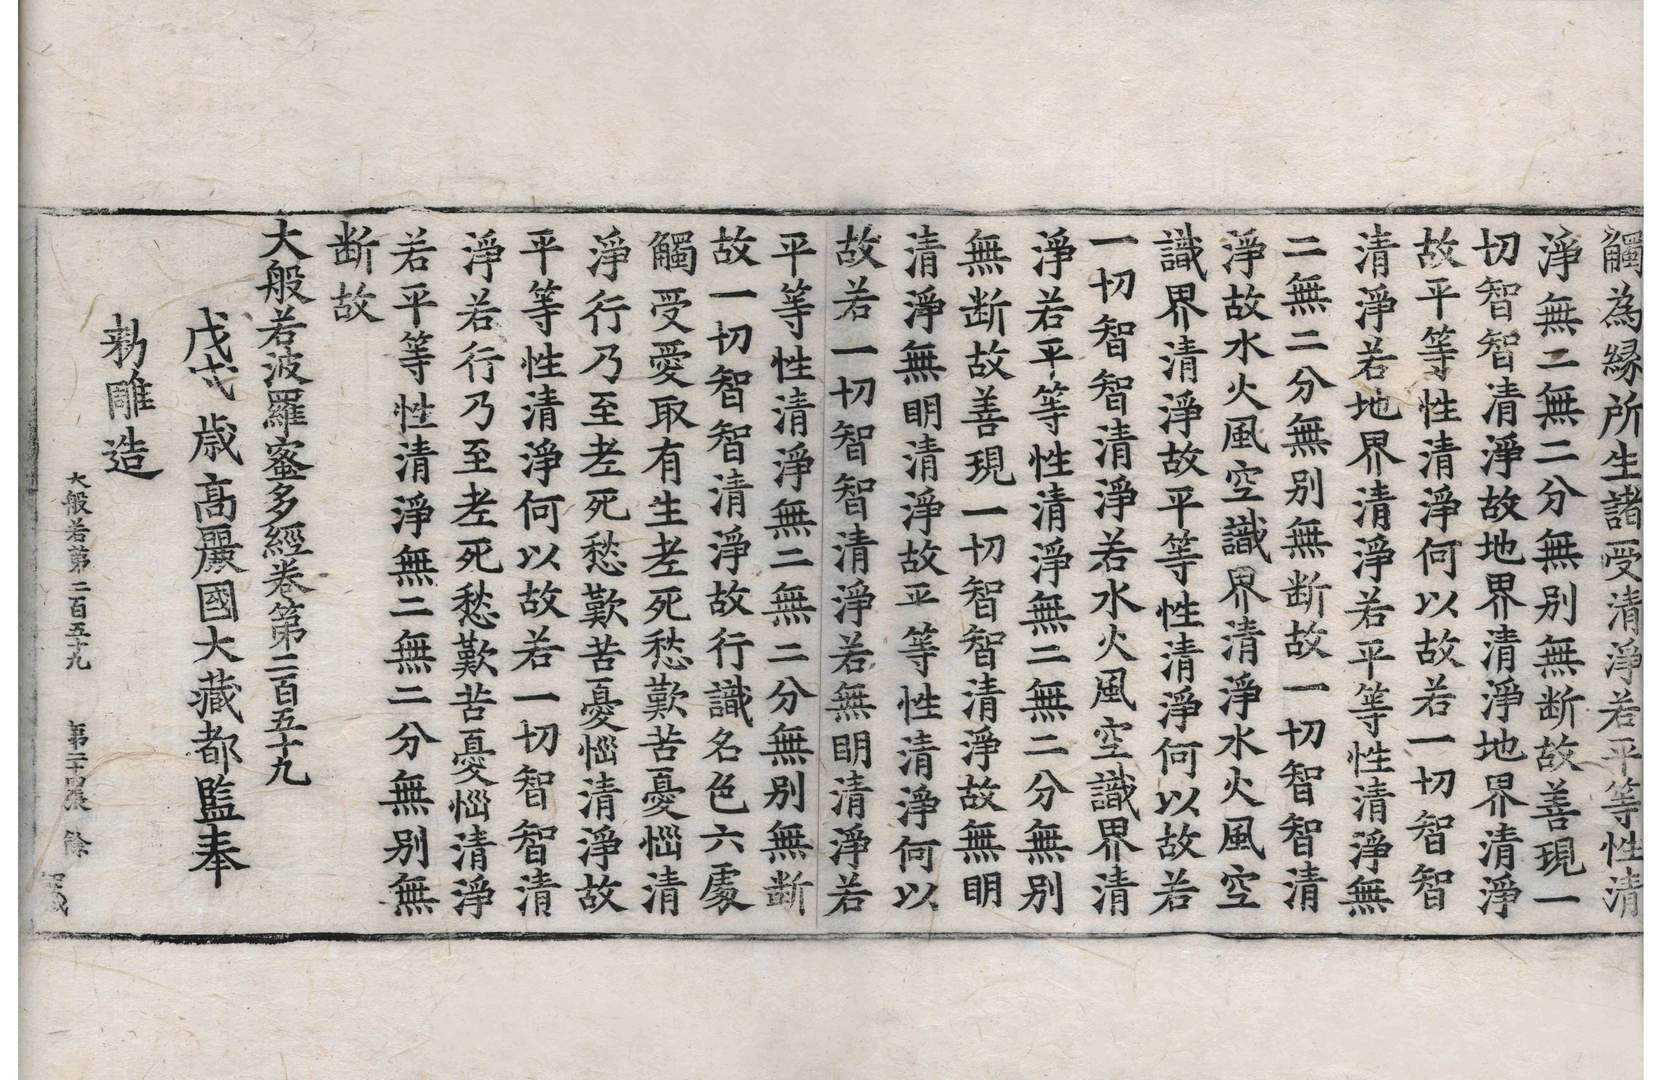 觸為縁所生諸受清淨若平等性清
淨無二無二分無別無断故善現一
切智智清淨故地界清淨地界清淨
故平等性清淨何以故若一切智智
清淨若地界清淨若平等性清淨無
二無二分無別無断故一切智智清
淨故水火風空識界清淨水火風空
識界清淨故平等性清淨何以故若
一切智智清淨若水火風空識界清
淨若平等性清淨無二無二分無別
無断故善現一切智智清淨故無明
清淨無明清淨故平等性清淨何以
故若一切智智清淨若無明清淨若
平等性清淨無二無二分無別無断
故一切智智清淨故行識名色六處
觸受愛取有生老死愁歎苦憂惱清
淨行乃至老死愁歎苦憂惱清淨故
平等性清淨何以故若一切智智清
淨若行乃至老死愁歎苦憂惱清淨
若平等性清淨無二無二分無別無
断故
大般若波羅蜜多經卷第二百五十九
戊戌歲高麗國大藏都監奉
勅雕造
大般若第二百五十九 第二十四張 餘